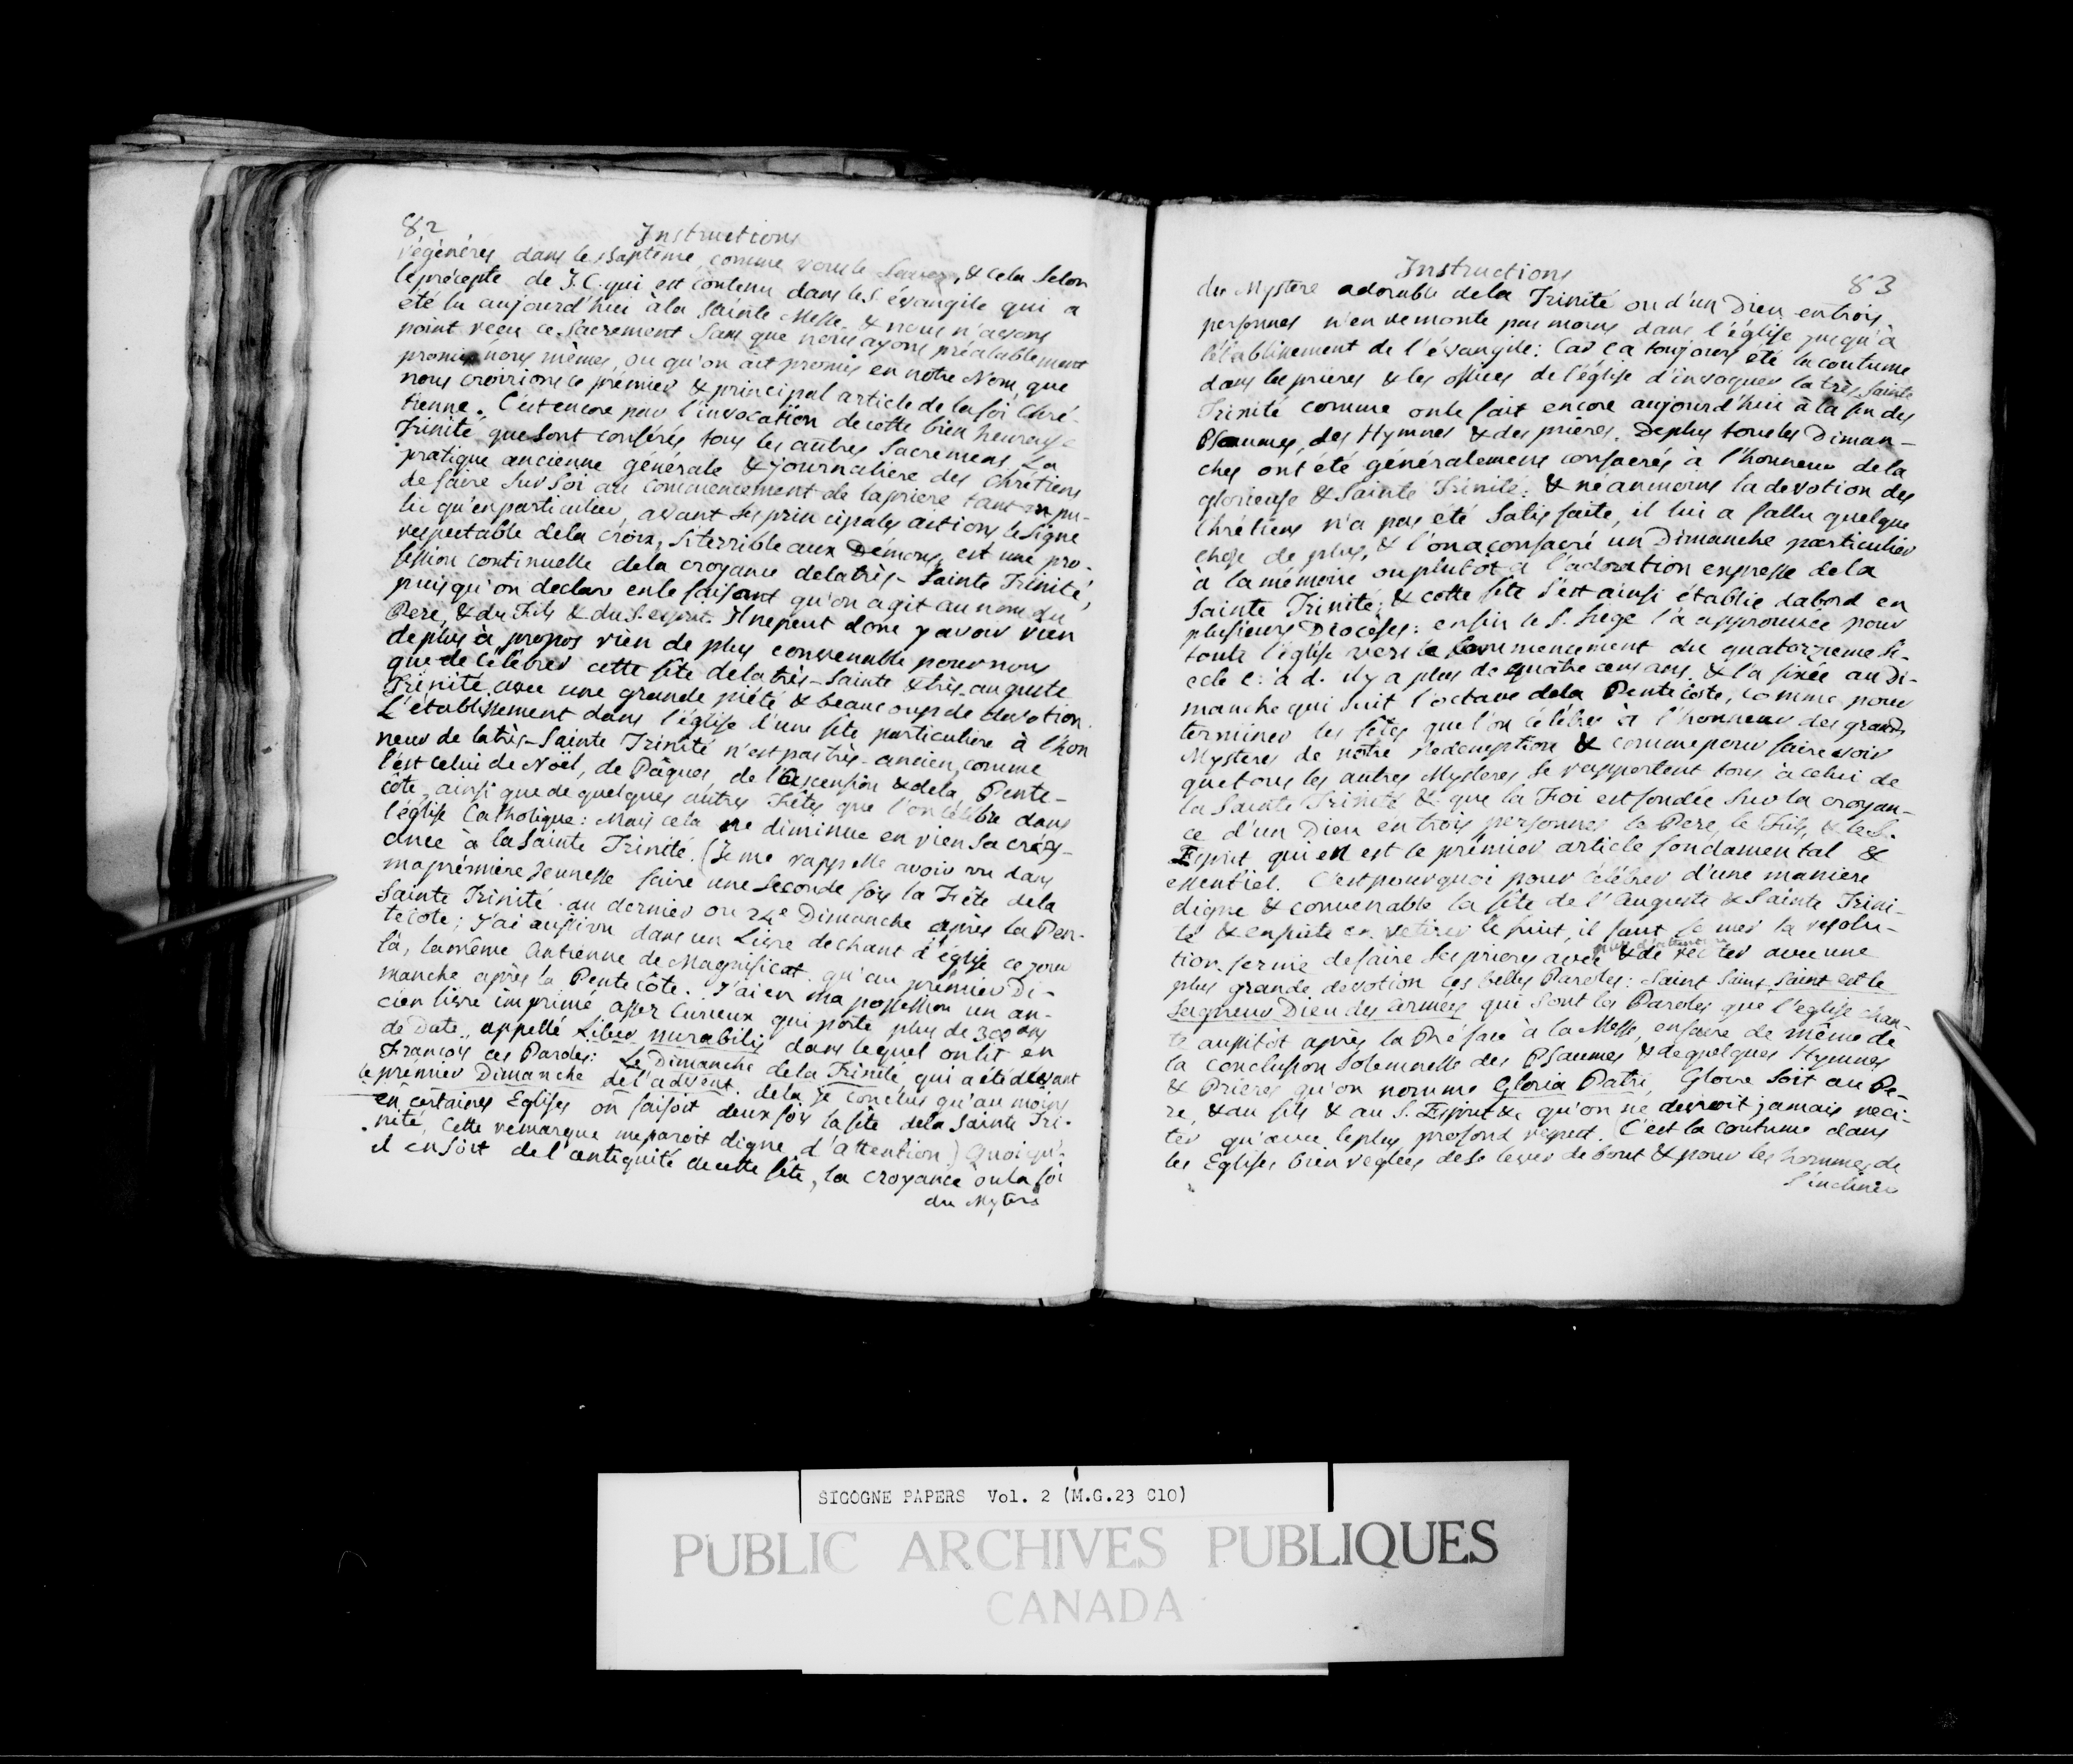 82
Instructions
régénérés dans le Baptême, comme vous le savez, & cela selon
le précepte de J.C. qui est contenu dans le S. évangile qui a
été lu aujourd'hui à la Sainte Messe & nous n'avons
point reçu ce Sacrement sans que nous ayons préalablement
promis nous mêmes, ou qu'on ait promis en notre Nom, que
nous croirions ce premier & principal article de la foi Chré-
tienne. C'est encore par l'invocation de cette bien heureuse
Trinité que sont conférés tous les autres Sacremens. La
pratique ancienne générale & journaliere des Chrétiens
de faire sur soi au commencement de la priere tant en pu-
blic qu'en particulier, avant les principales actions le Signe
respectable de la croix, si terrible aux Démons, est une pro-
fession continuelle de la croyance de la très-Sainte Trinité,
puis qu'on declare en le faisant qu'on agit au nom du
Pere, & du Fils & du S. esprit. Il ne peut donc y avoir rien
de plus à propos rien de plus convenable pour nous
que de célébrer cette fête de la très-Sainte & très-auguste
Trinité avec une grande piété & beaucoup de devotion.
L'établissement dans l'église d'une fête particuliere à l'hon
neur de la très-Sainte Trinité n'est pas très-ancien, comme
l'est celui de Noël, de Pâques, de l'Ascension & de la Pente-
côte, ainsi que de quelques autres Fêtes que l'on célébre dans
l'église Catholique: Mais cela ne diminue en rien sa croy-
ance à la Sainte Trinité. (Je me rappelle avoir vu dans
ma prémière Jeunesse faire une seconde fois la Fête de la
Sainte Trinité au dernier ou 24e Dimanche après la Pen-
tecote; J'ai aussi vu dans un Livre de chant d'église ce jour
là, la même Antienne de Magnificat qu'au premier Di-
manche après la Pentecôte. J'ai en ma possession un an-
cien livre imprimé assez curieux qui porte plus de 300 ans
de Date, appellé Liber mirabilis dans lequel on lit en
François ces Paroles: Le Dimanche de la Trinité qui a été devant
le premier Dimanche de l'advent. de la je conclus qu'au moins
en certaines Eglises on faisoit deux fois la fête de la Sainte Tri-
nité, Cette remarque me paroit digne d'attention) Quoi qu'-
il en soit de l'antiquité de cette fête, la croyance ou la foi
du Mystere
Instructions
83
du Mystere adorable de la Trinité ou d'un Dieu en trois
personnes n'en remonte pas moins dans l'église jusqu'à
l'établissement de l'évangile: Car ç'a toujours été la coutume
dans les prieres & les offices de l'église d'invoquer la très Sainte
Trinité comme on le fait encore aujourd'hui à la fin des
Pseaumes, des Hymnes & des prieres. De plus tous les Diman-
ches ont été généralement consacrés à l'honneur de la
glorieuse & Sainte Trinité: & néanmoins la devotion des
Chrétiens n'a pas été satisfaite, il lui a fallu quelque
chose de plus, & l'on a consacré un Dimanche particulier
à la mémoire ou plutôt à l'adoration expresse de la
Sainte Trinité; & cette fête s'est ainsi établie dabord en
plusieurs Diocèses: enfin le S. Siege l'a approuvée pour
toute l'église vers le commencement du quatorzieme Si-
ecle c. à d. il y a plus de quatre cens ans. & l'a fixée au Di-
manche qui suit l'octave de la Pentecôte, comme pour
terminer les fêtes que l'on célébre à l'honneur des grands
Mysteres de notre redemption & comme pour faire voir
que tous les autres Mysteres se rapportent tous à celui de
la Sainte Trinité & que la Foi est fondée sur la croyan-
ce d'un Dieu en trois personnes le Pere, le Fils, & le S.
Esprit qui en est le prémier article fondamental &
essentiel. C'est pourquoi pour célébrer d'une maniere
digne & convenable la fête de l'Auguste & Sainte Trini-
té & ensuite en retirer le fruit, il faut former la resolu-
tion ferme de faire ses prieres avec plus d'attention & de réciter avec une
plus grande devotion ces belles Paroles: Saint Saint Saint est le
Seigneur Dieu des Armées qui sont les Paroles que l'eglise chan-
te aussitôt après la Préface à la Messe, en faire de même de
la conclusion solemnelle des Pseaumes & de quelques Hymnes
& Prieres qu'on nomme Gloria Patri, Gloire soit au Pe-
re, & au fils & au S. Esprit &c qu'on ne devroit jamais reci-
ter qu'avec le plus profond respect. C'est la coutume dans
les Eglises bien reglées de se lever debout & pour les hommes de
s'incliner
SICOGNE PAPERS Vol. 2 (M.G.23 C10)
PUBLIC ARCHIVES PUBLIQUES
CANADA